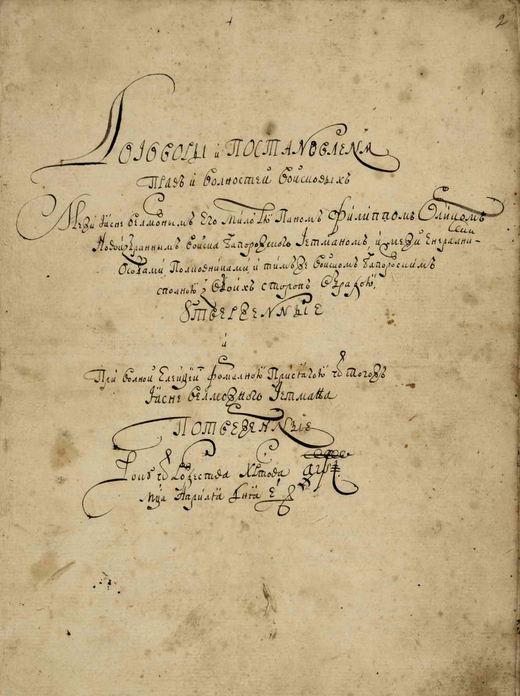 2
Договоры и Постановленя
Правъ и волностей войсковыхъ
Межи Ясне велможнымъ Его Милостю Паномъ Филиппомъ Орликомъ
Новоизбраннымъ войска Запорожского Гетманомъ и межи Енералными
Особами Полковниками и тимъ же войскомъ Запорозскимъ
сполною з обоихъ сторонъ обрадою
Утверженные
и
При волной Елекціи формалною присягою ѿ тогожъ
Ясне велможного Гетмана
Потверженные
Року ѿ Рождества Христова ҂аѱі
Мця Априлїа дня е҃